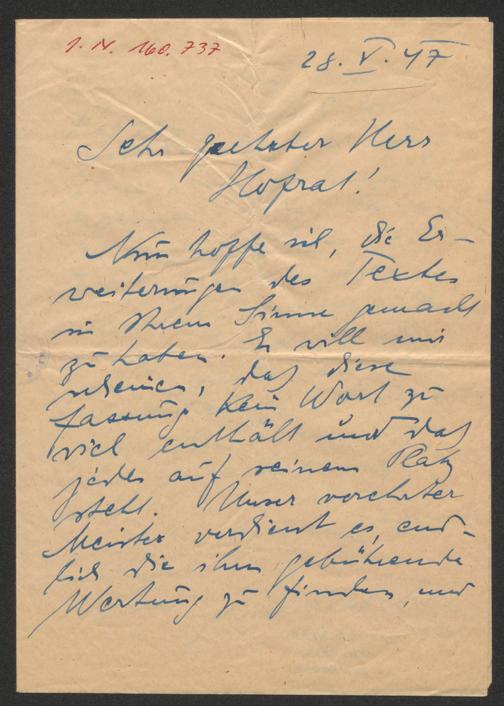 I. N. 160.737
28. V. 47
Sehr geehrter Herr
Hofrat!
Nun hoffe ich, die Er-
weiterungen des Textes
in Ihrem Sinne gemacht
zu haben. Es will mir
scheinen, daß diese
Fassung kein Wort zu
viel enthält und daß
jedes auf seinem Platz
steht. Unser verehrter
Meister verdient es, end-
lich die ihm gebührende
Wertung zu finden, und